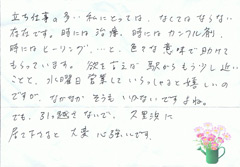 立ち仕事の多い私にとっては、なくてはならない
存在です。時には治療、時にはカンフル剤、
時にはヒーリング、…と、色々な意味で助けて
もらっています。欲を言えば駅からもう少し近い
ことと、水曜日営業していらっしゃると嬉しいの
ですが、なかなかそうもいかないですよね。
でも、引っ越さないで、久里浜に
居て下さると大変に心強いです。